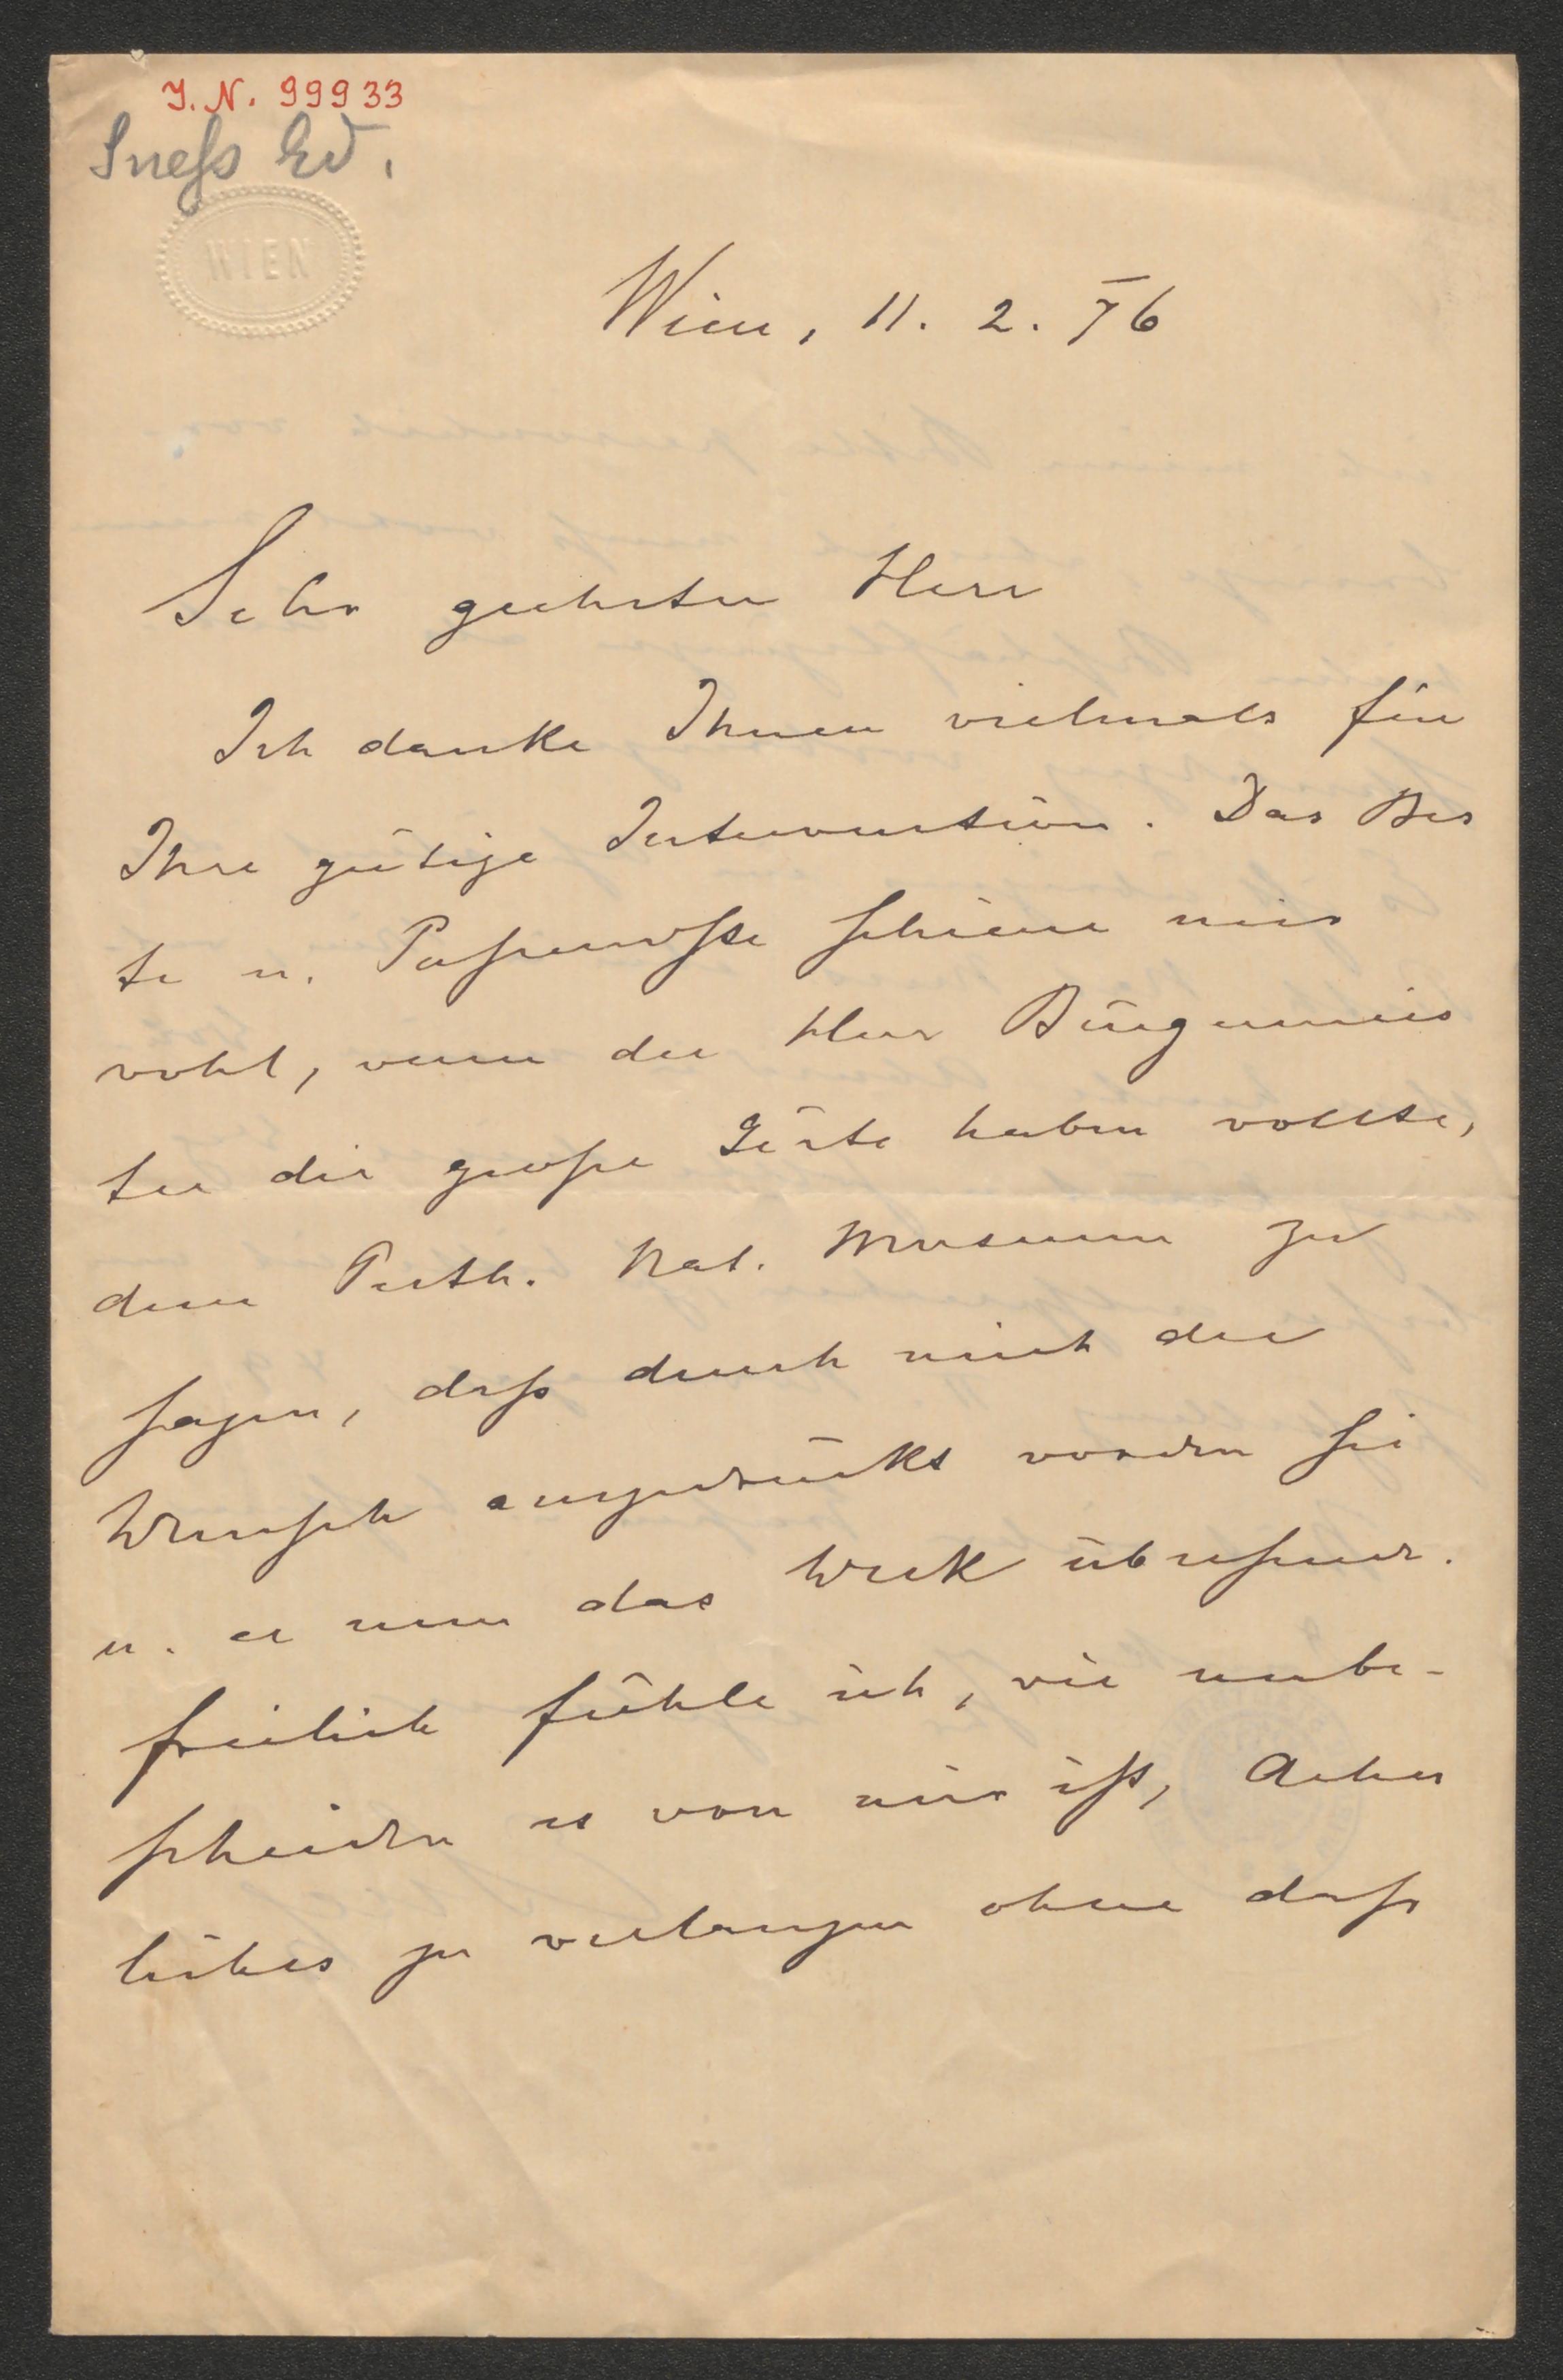 I. N. 99933
Sueß Ed.
WIEN
Wien, 11. 2. 76
Sehr geehrter Herr
Ich danke Ihnen vielmals für
Ihre gütige Intervention. Das Bes
te u. Passendste schiene mir
wohl, wenn der Herr Bürgermeis
ter die große Güte haben wollte,
dem Pesth. Nat. Museum zu
sagen, daß durch mich der
Wunsch ausgedrückt worden sei
u. er nun das Werk übersende.
Freilich fühle ich, wie unbe-
scheiden es von mir ist, Aehn
liches zu verlangen ohne daß